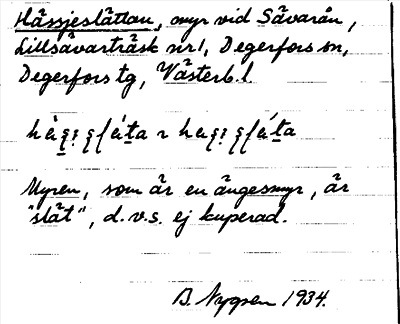 Hässjeslåttan, myr vid Sävarån,
Lillsävarträsk nr 1, Degerfors sn,
Degerfors tg, Västerb. l.
Myren, som är en ängesmyr, är
"slät", d.v.s. ej kuperad.
B. Nygren 1934.